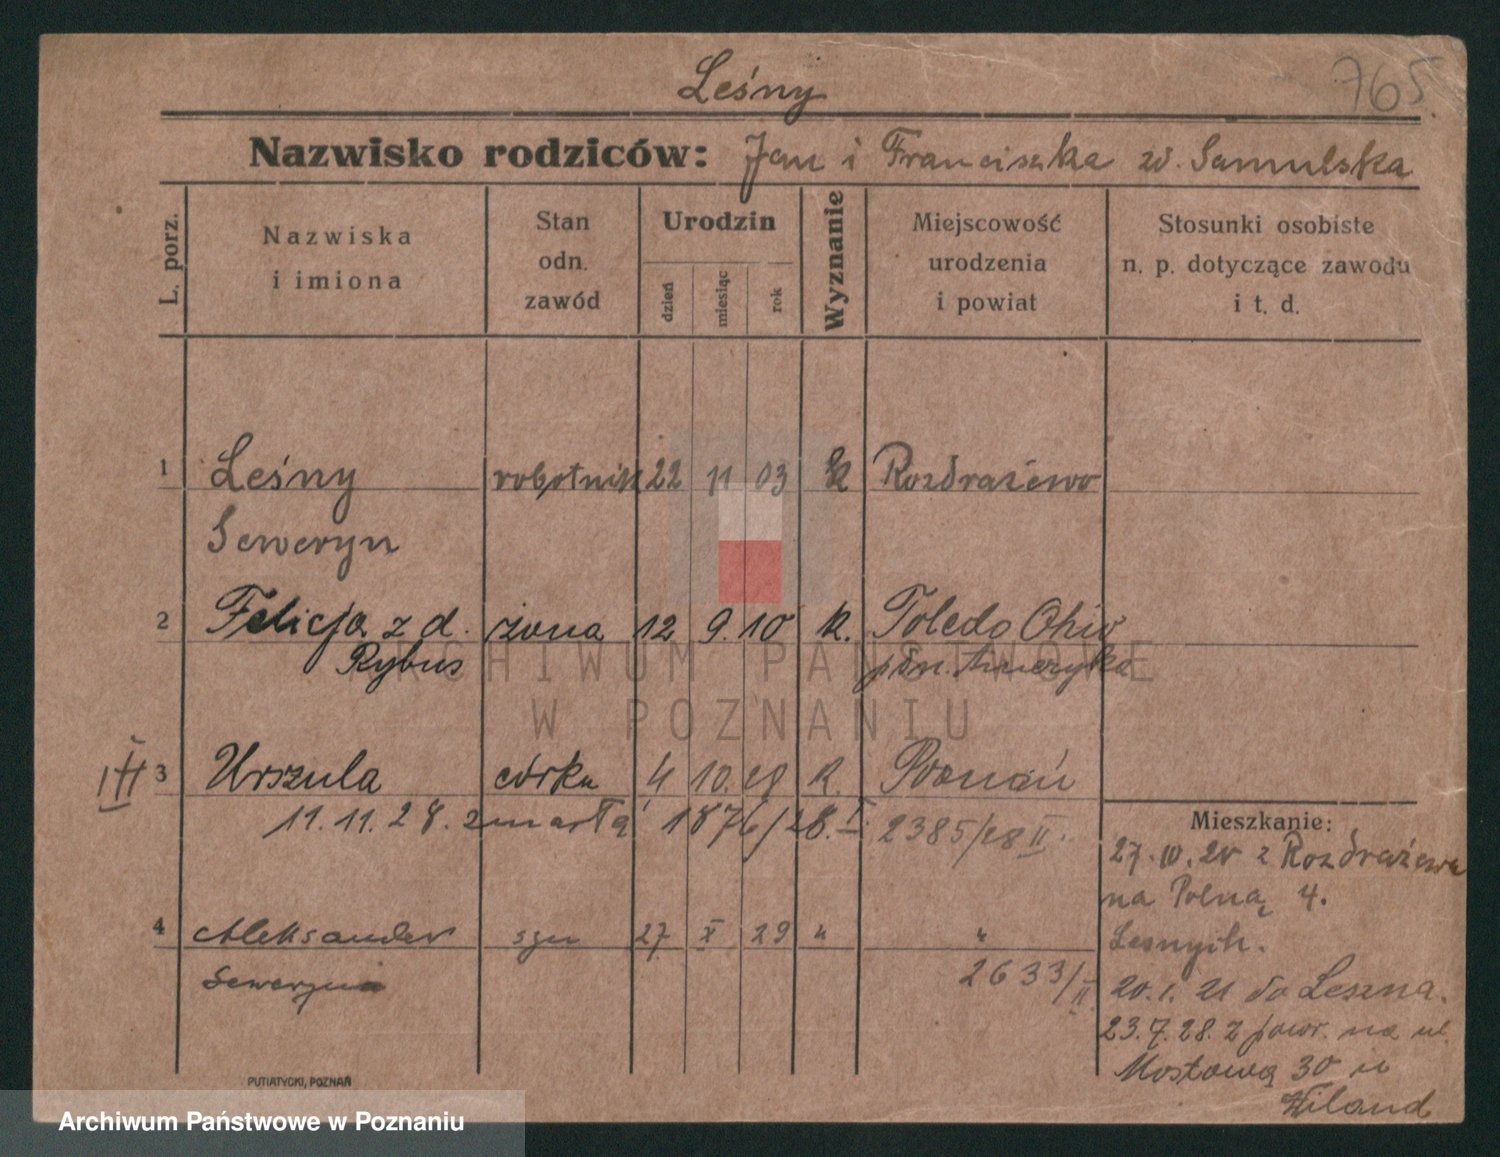 Leśny
765
Nazwisko rodziców: Jan i Franciszka zd. Samulska
L. porz.
Nazwiska
i imiona
Stan
odn.
zawód
Urodzin
dzień
miesiąc
rok
Wyznanie
Miejscowość
urodzenia
i powiat
Stosunki osobiste
n. p. dotyczące zawodu
i t. d.
1 Leśny robotnik 22 11 03 k Rozdrażewo
Seweryn
2 Felicja z d. żona 12 9. 10 k. Toledo Ohio
Rybus półn. Ameryka
ARCHIWUM PAŃSTWOWE
W POZNANIU
3 Urszula córka 4 10. 28 k. Poznań
11. 11. 28. zmarła 1876/28. I. 2385/28 II.
4 Aleksander syn 27 X 29 " "
Seweryn 2633/II
Mieszkanie:
z Rozdrażewa
na Polną 4.
20. 1. 21 do Leszna.
23. 7. 28. z powr. na ul.
Mostową 30 u
Wiland
PUTIATYCKI, POZNAŃ
Archiwum Państwowe w Poznaniu